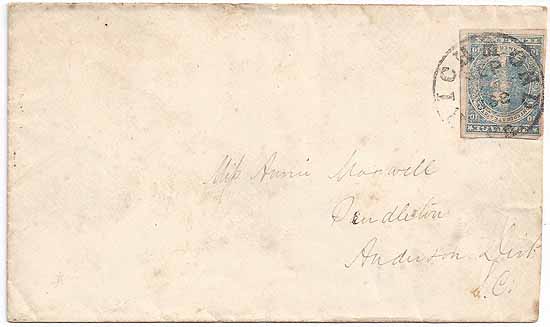 RICHMOND
62
Miss Annie Maxwell
Pendleton
Anderson Dist
S.C.